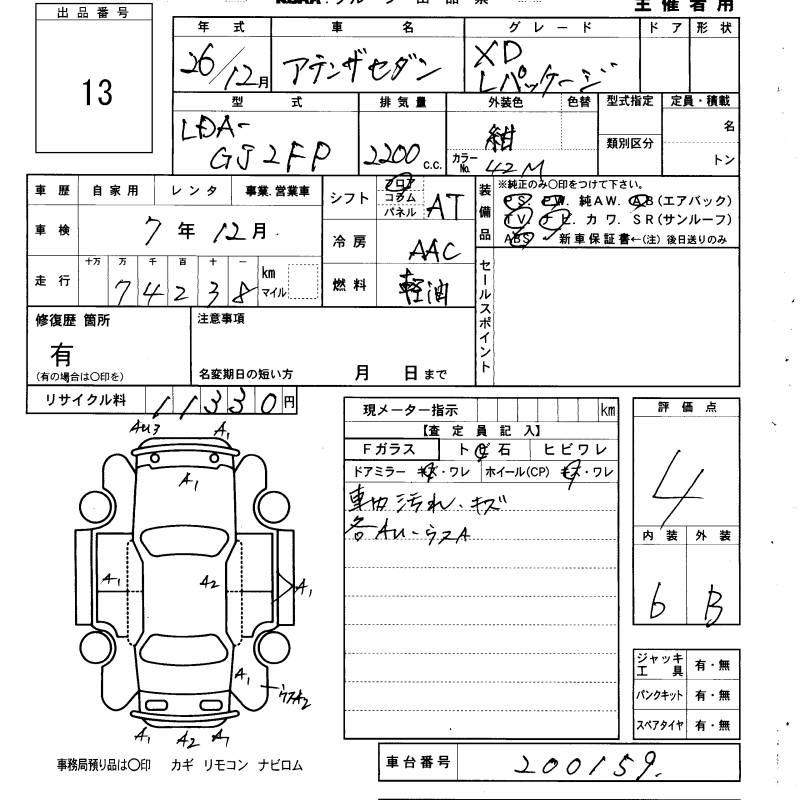 出品番号
13
主催者用
年式 車名 グレード ドア 形状
26/12月 アテンザセダン XD
Lパッケージ
型式 排気量 外装色 色替 型式指定 定員・積載
LDA-
GJ2FP
2200 c.c.
紺
カラーNo. 42M
類別区分
名
トン
車歴 自家用 レンタ 事業.営業車
車検 7年12月
走行 十万 万 千 百 十 一
74238 km
マイル
シフト フロア コラム パネル AT
冷房 AAC
燃料 軽油
装備品
※純正のみ○印をつけて下さい。
PS. PW. 純AW. AB(エアバック)
TV. ナビ. カワ. SR(サンルーフ)
ABS 新車保証書←(注) 後日送りのみ
セールスポイント
修復歴 箇所
有
(有の場合は○印を)
注意事項
名変期日の短い方 月 日まで
リサイクル料 11330円
現メーター指示 km
【査定員記入】
Fガラス トビ石 ヒビワレ
ドアミラー キズ・ワレ ホイール(CP) キズ・ワレ
車内 汚れ・キズ
各AU-ウスA
評価点
4
内装 外装
6 B
AU3 A1
A1
A1 A2 A1
A1
ウスA2
A1 A2 A1
ジャッキ工具 有・無
パンクキット 有・無
スペアタイヤ 有・無
事務局預り品は○印 カギ リモコン ナビロム
車台番号 200159.